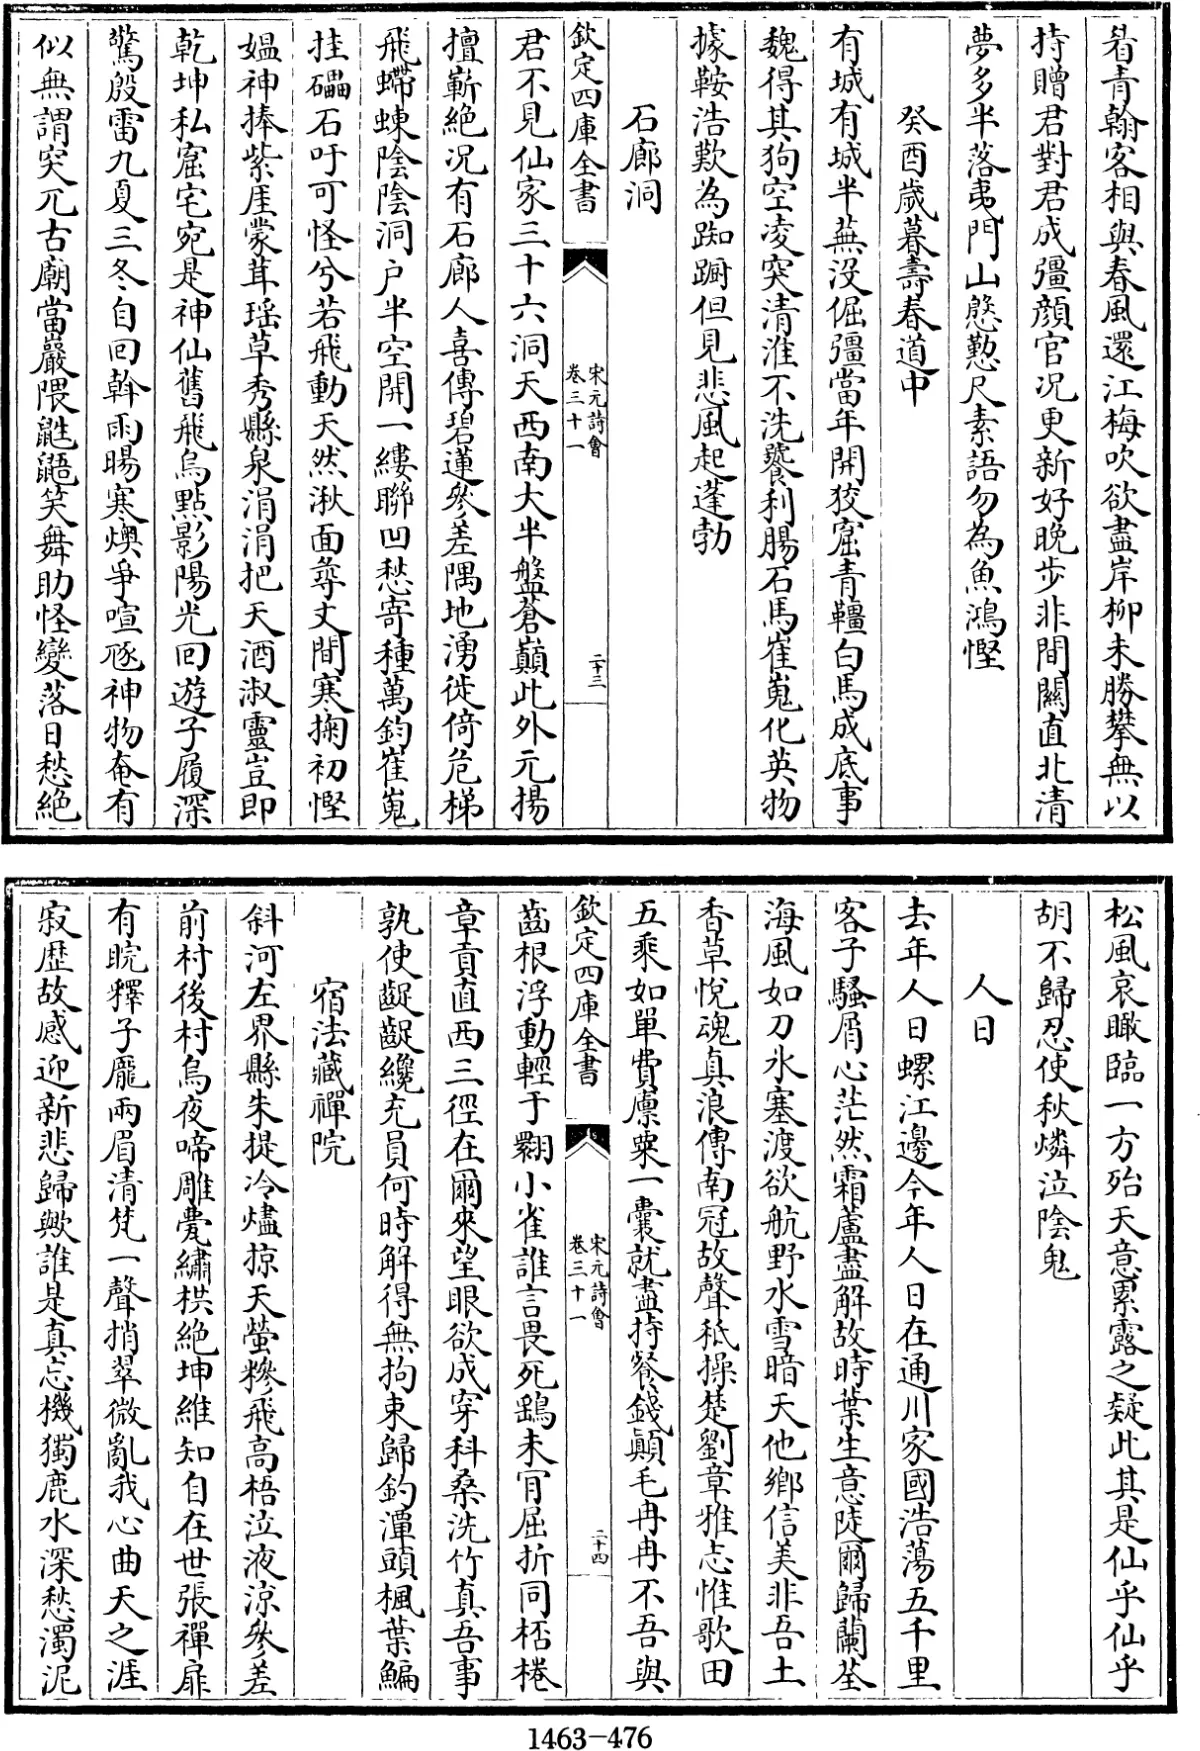 看青翰客相與春風還江梅吹欲盡岸柳未勝攀無以
持贈君對君成彊顔官况更新好晚步非間關直北清
夢多半落夷門山慇懃尺素語勿為魚鴻慳
癸酉歲暮壽春道中
有城有城半蕪没倔彊當年開狡窟青韁白馬成底事
魏得其狗空凌突清淮不洗饕利腸石馬崔嵬化英物
據鞍浩歎為踟蹰但見悲風起蓬勃
石廊洞
欽定四庫全書
宋元詩會
卷三十一
二十三
君不見仙家三十六洞天西南大半盤蒼巔此外元揚
擅嶄絶况有石廊人喜傳碧蓮參差隅地湧徙倚危梯
飛蝃蝀陰陰洞户半空開一縷聯凹愁寄種萬鈞崔嵬
挂礧石吁可怪兮若飛動天然湫面尋丈間寒掬初慳
媪神捧紫厓蒙茸瑶草秀縣泉涓涓把天酒淑靈豈即
乾坤私窟宅宛是神仙舊飛烏點影陽光回遊子履深
驚殷雷九夏三冬自回斡雨暘寒燠爭喧豗神物奄有
似無謂突兀古廟當嚴隈鼪鼯笑舞助怪變落日愁絶
松風哀瞰臨一方殆天意累露之疑此其是仙乎仙乎
胡不歸忍使秋燐泣陰鬼
人日
去年人日螺江邊今年人日在通川家國浩蕩五千里
客子騷屑心茫然霜蘆盡解故時葉生意陡爾歸蘭荃
海風如刀水塞渡欲航野水雪暗天他鄉信美非吾土
香草悅魂真浪傳南冠故聲秪操楚劉章雅志惟歌田
五乘如單費廪粟一囊就盡持餐錢顛毛冉冉不吾與
欽定四庫全書
宋元詩會
卷三十一
二十四
齒根浮動輕于翾小雀誰言畏死鷂未肎屈折同桮棬
章貢直西三徑在爾來望眼欲成穿科桑洗竹真吾事
孰使齪齪纔充員何時解得無拘束歸釣潭頭楓葉鯿
宿法藏禪院
斜河左界縣朱提冷燼掠天螢糝飛高梧泣液涼參差
前村後村烏夜啼雕甍繡栱絶坤維知自在世張禪扉
有睆釋子龐兩眉清梵一聲捎翠微亂我心曲天之涯
寂歴故感迎新悲歸歟誰是真忘機獨鹿水深愁濁泥
1463-476